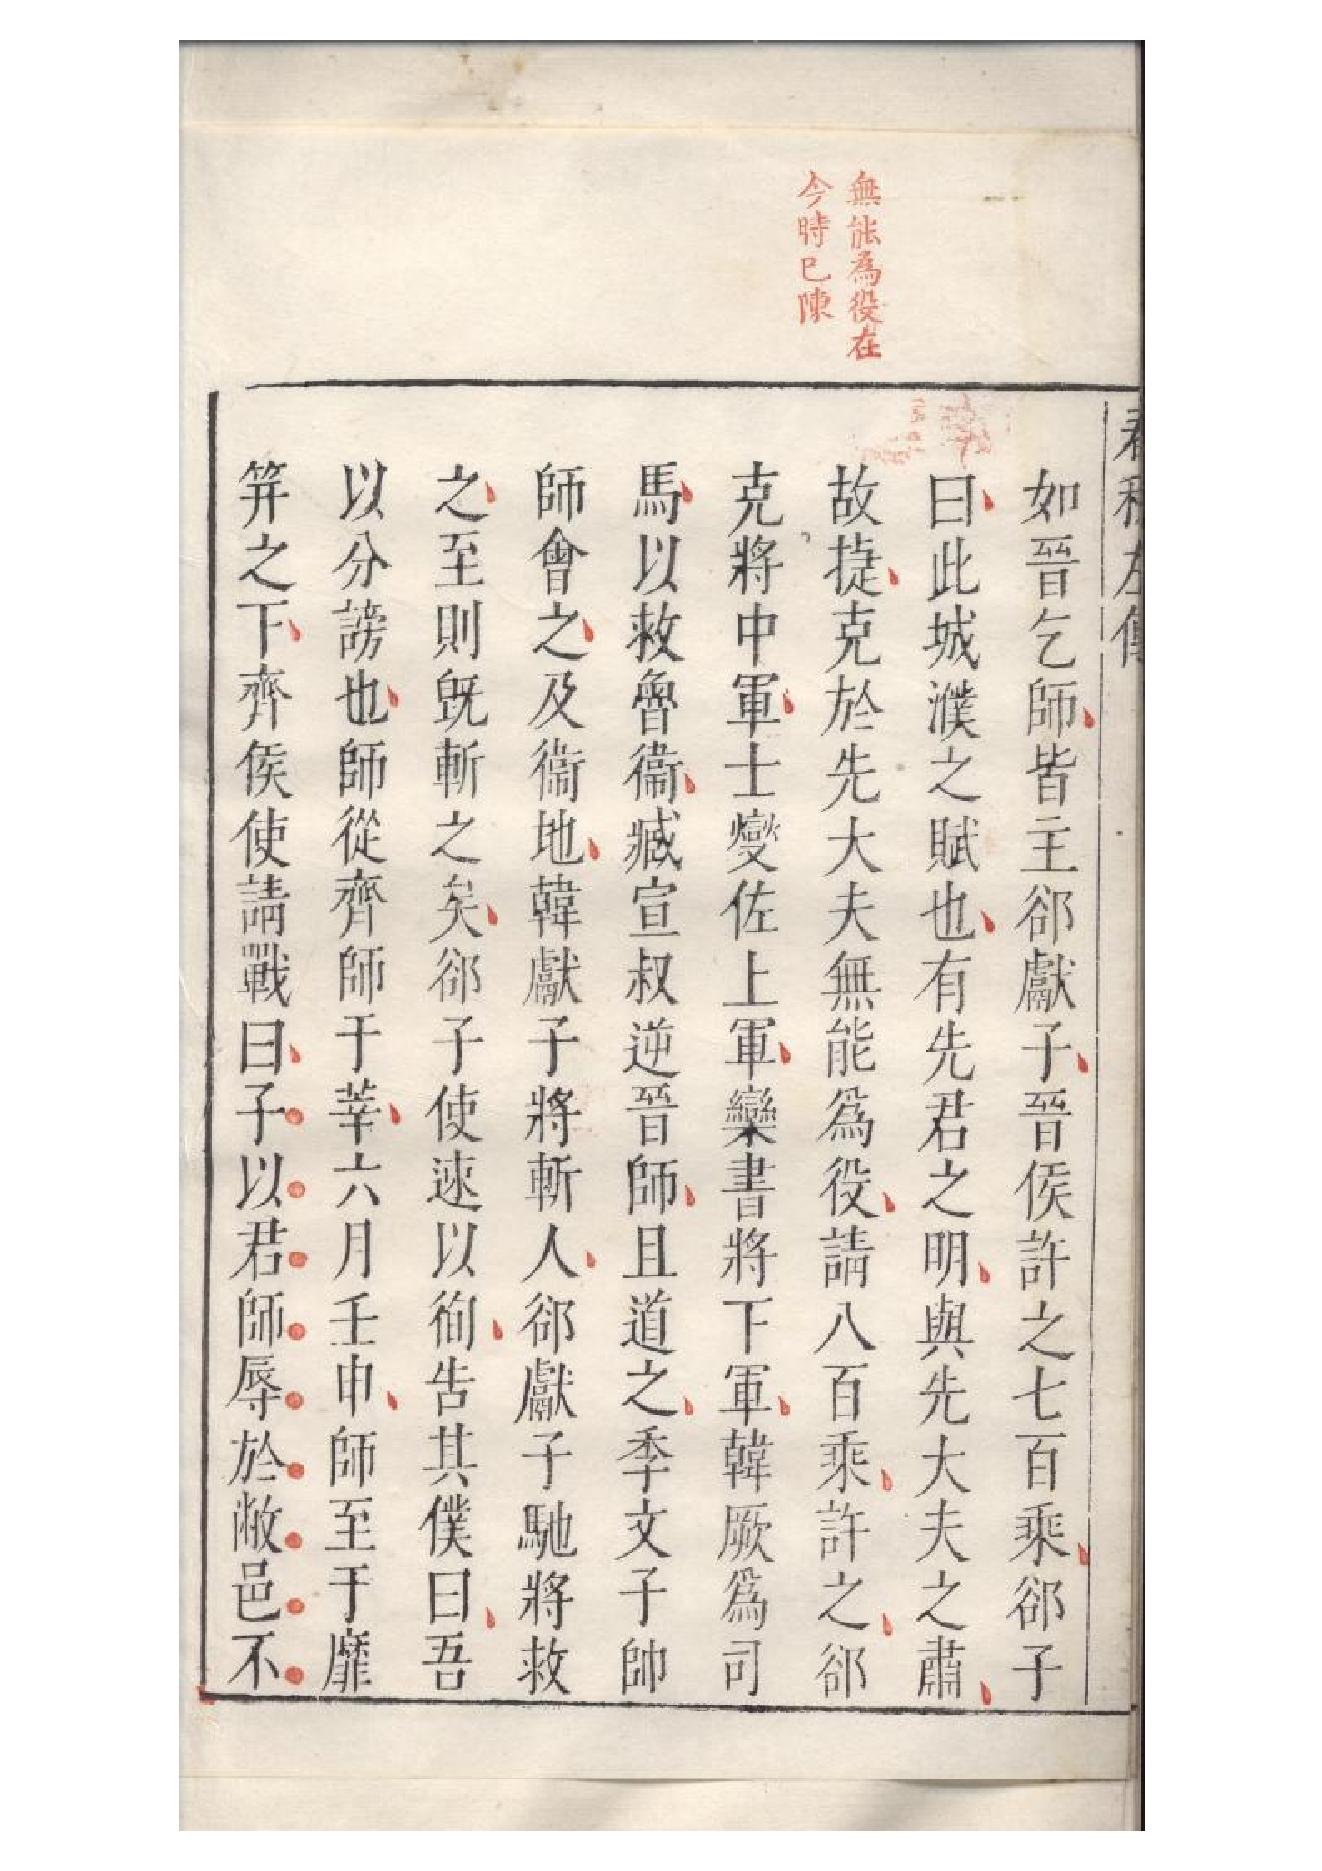 無能為役在
今時已陳
春秋左傳
如晉乞師皆主郤獻子晉侯許之七百乘郤子
曰此城濮之賦也有先君之明與先大夫之肅
故捷克於先大夫無能爲役請八百乘許之郤
克將中軍士燮佐上軍欒書將下軍韓厥爲司
馬以救魯衞臧宣叔逆晉師且道之季文子帥
師會之及衞地韓獻子將斬人郤獻子馳將救
之至則旣斬之矣郤子使速以徇告其僕曰吾
以分謗也師從齊師于莘六月壬申師至于靡
笄之下齊侯使請戰曰子以君師辱於敝邑不